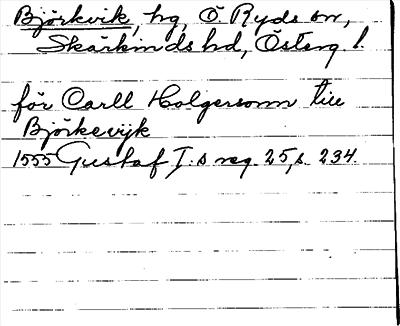 Björkvik, hg, Ö Ryds sn,
Skärkinds hd, Österg l.
för Carll Holgersonn till
Björkevijk
1555 Gustaf I:s reg. 25, s. 234.